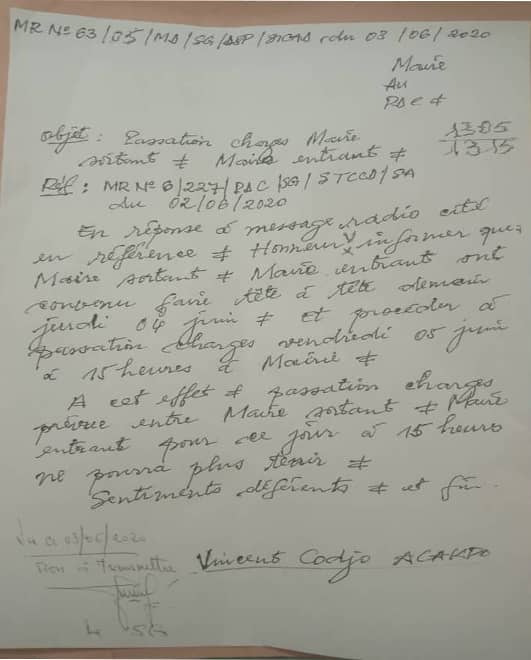 MR Nº 63/05/MD/SG/DSP/STCAD du 03/06/2020
Maire
Au
PDC #
Objet : Passation charges Maire
sortant # Maire entrant #
1305
1315
Réf : MR Nº 6/227/PDC/SG/STCCD/SA
du 02/06/2020
En réponse à message radio cité
en référence # Honneur informer que
Maire sortant # Maire entrant ont
convenu faire tête à tête demain
jeudi 04 juin # et procéder à
passation charges vendredi 05 juin
à 15 heures à Mairie #
A cet effet # passation charges
prévue entre Maire sortant # Maire
entrant pour ce jour à 15 heures
ne pourra plus tenir #
Sentiments déférents # et fin.
Vu ce 03/06/2020
Bon à transmettre
Vincent Codjo ACAKPO
Le SG